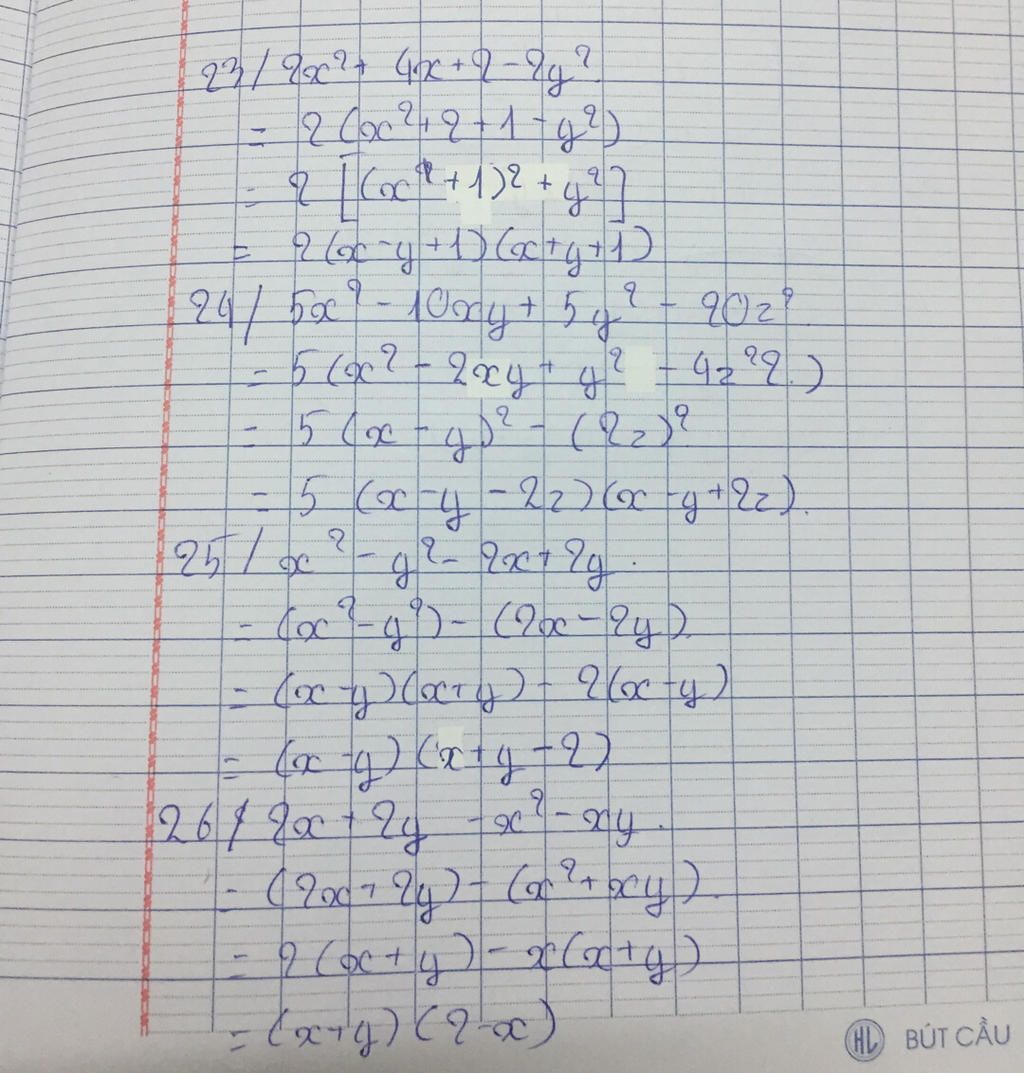 23/ 2x² + 4x + 2 - 2y²
= 2 (x² + 2 + 1 - y²)
= 2 [(x² + 1)² + y²]
= 2 (x - y + 1) (x + y + 1)
24/ 5x² - 10xy + 5y² - 20z²
= 5 (x² - 2xy + y² - 4z²2.)
= 5 (x - y)² - (2z)²
= 5 (x - y - 2z) (x - y + 2z).
25/ x² - y² - 2x + 2y.
= (x² - y²) - (2x - 2y)
= (x - y) (x + y) - 2(x - y)
= (x - y) (x + y - 2)
26/ 2x + 2y - x² - xy.
= (2x + 2y) - (x² + xy)
= 2 (x + y) - x(x + y)
= (x + y) (2 - x)
HL BÚT CẦU